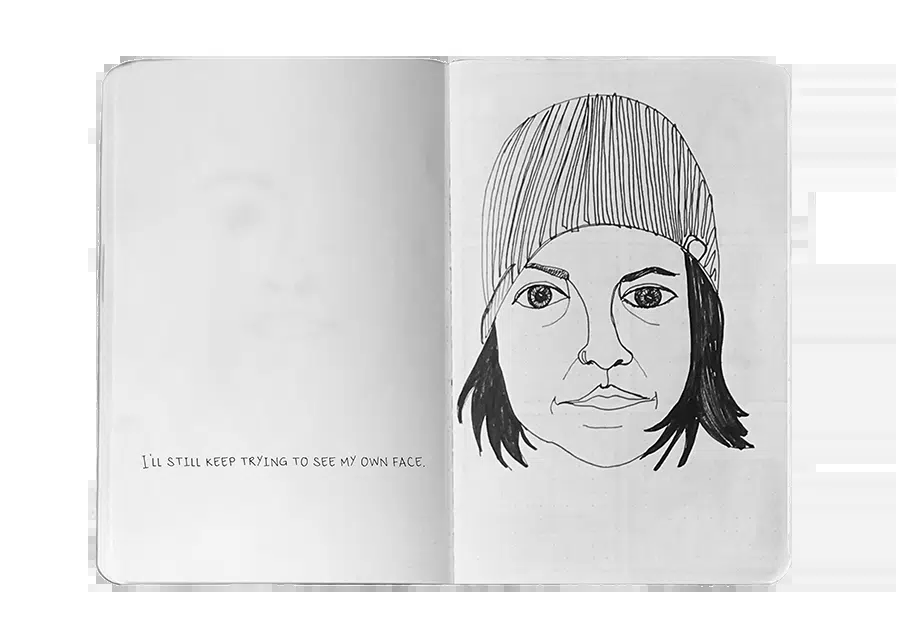 I'LL STILL KEEP TRYING TO SEE MY OWN FACE.